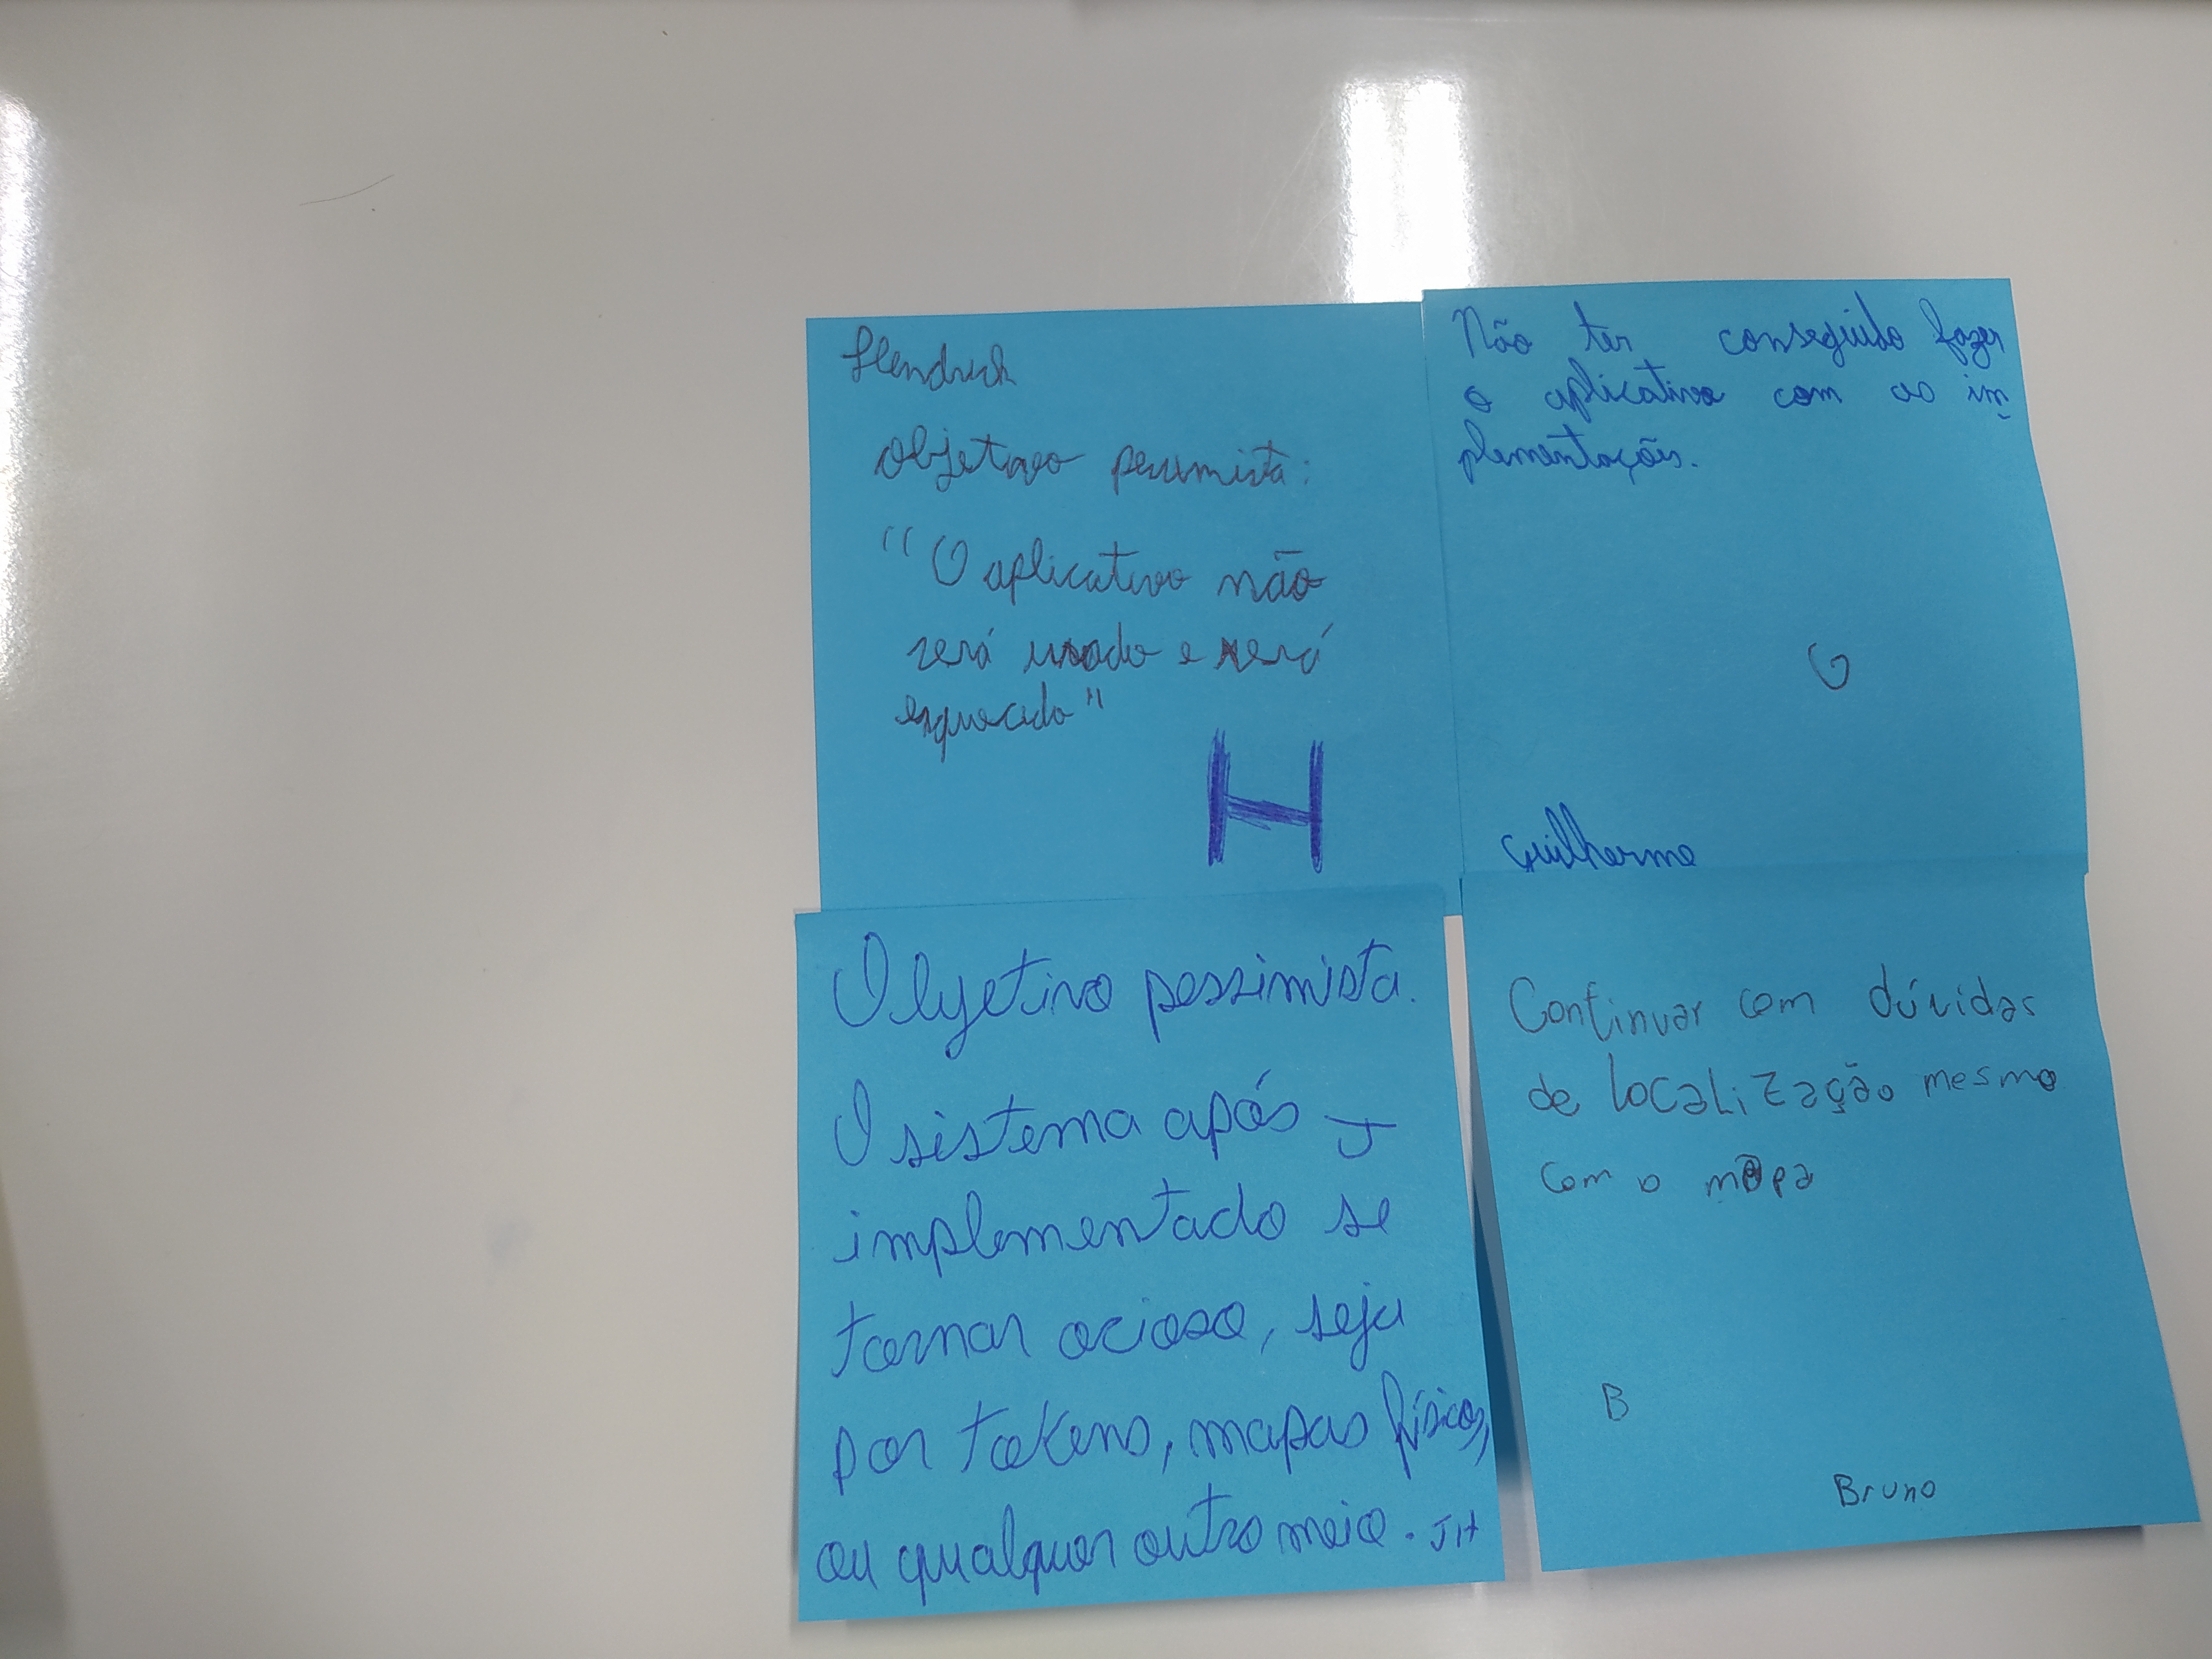 Hendrick
objetivo pessimista:
"O aplicativo não
será usado e será
esquecido"
H
Não ter conseguido fazer
o aplicativo com as im
plementações.
G
Guilherme
Objetivo pessimista.
O sistema após J
implementado se
tornar ocioso, seja
por tokens, mapas físicos,
ou qualquer outro meio. JH
Continuar com dúvidas
de localização mesmo
com o mapa
B
Bruno